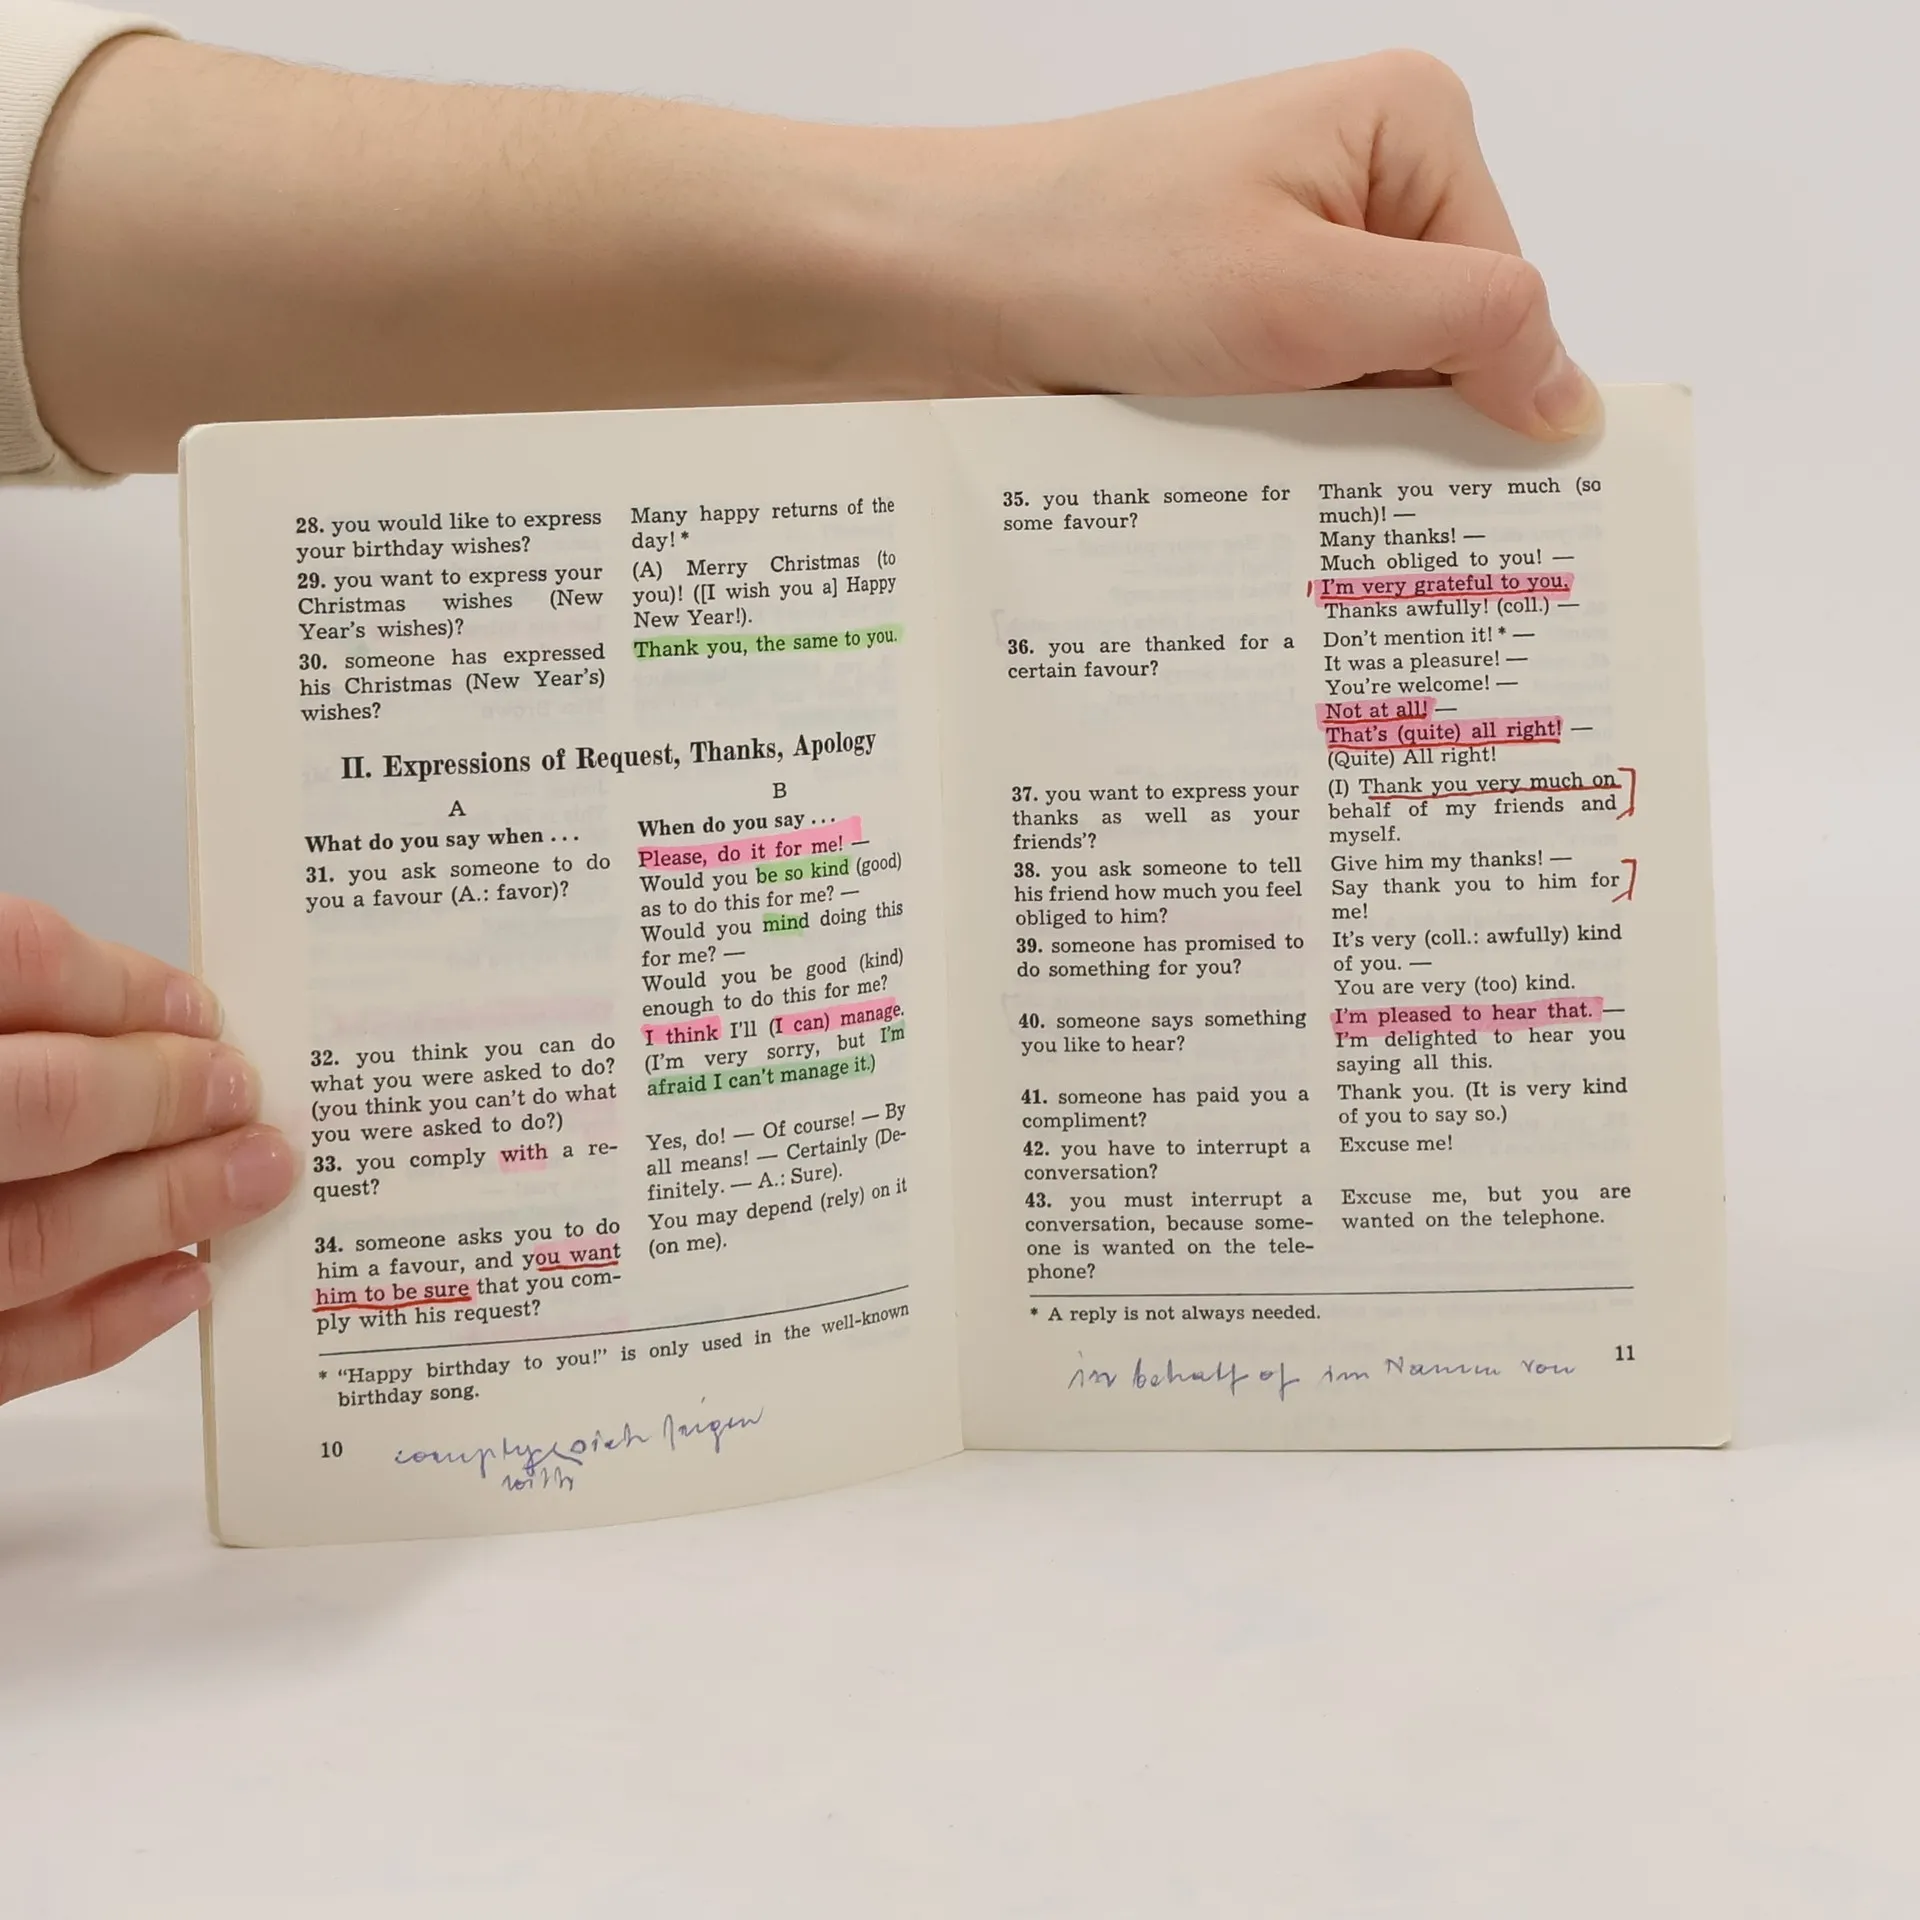 28. you would like to express
your birthday wishes?
29. you want to express your
Christmas wishes (New
Year's wishes)?
30. someone has expressed
his Christmas (New Year's)
wishes?
Many happy returns of the
day! *
(A) Merry Christmas (to
you)! ([I wish you a] Happy
New Year!).
Thank you, the same to you.
II. Expressions of Request, Thanks, Apology
A
What do you say when ...
31. you ask someone to do
you a favour (A.: favor)?
32. you think you can do
what you were asked to do?
(you think you can't do what
you were asked to do?)
33. you comply with a re-
quest?
34. someone asks you to do
him a favour, and you want
him to be sure that you com-
ply with his request?
B
When do you say ...
Please, do it for me! —
Would you be so kind (good)
as to do this for me? —
Would you mind doing this
for me? —
Would you be good (kind)
enough to do this for me?
I think I'll (I can) manage.
(I'm very sorry, but I'm
afraid I can't manage it.)
Yes, do! — Of course! — By
all means! — Certainly (De-
finitely. — A.: Sure).
You may depend (rely) on it
(on me).
* "Happy birthday to you!" is only used in the well-known
birthday song.
10
comply
with
35. you thank someone for
some favour?
36. you are thanked for a
certain favour?
37. you want to express your
thanks as well as your
friends'?
38. you ask someone to tell
his friend how much you feel
obliged to him?
39. someone has promised to
do something for you?
40. someone says something
you like to hear?
41. someone has paid you a
compliment?
42. you have to interrupt a
conversation?
43. you must interrupt a
conversation, because some-
one is wanted on the tele-
phone?
Thank you very much (so
much)! —
Many thanks! —
Much obliged to you! —
I'm very grateful to you.
Thanks awfully! (coll.) —
Don't mention it! * —
It was a pleasure! —
You're welcome! —
Not at all! —
That's (quite) all right! —
(Quite) All right!
(I) Thank you very much on
behalf of my friends and
myself.
Give him my thanks! —
Say thank you to him for
me!
It's very (coll.: awfully) kind
of you. —
You are very (too) kind.
I'm pleased to hear that. —
I'm delighted to hear you
saying all this.
Thank you. (It is very kind
of you to say so.)
Excuse me!
Excuse me, but you are
wanted on the telephone.
* A reply is not always needed.
11
in behalf of im Namen von